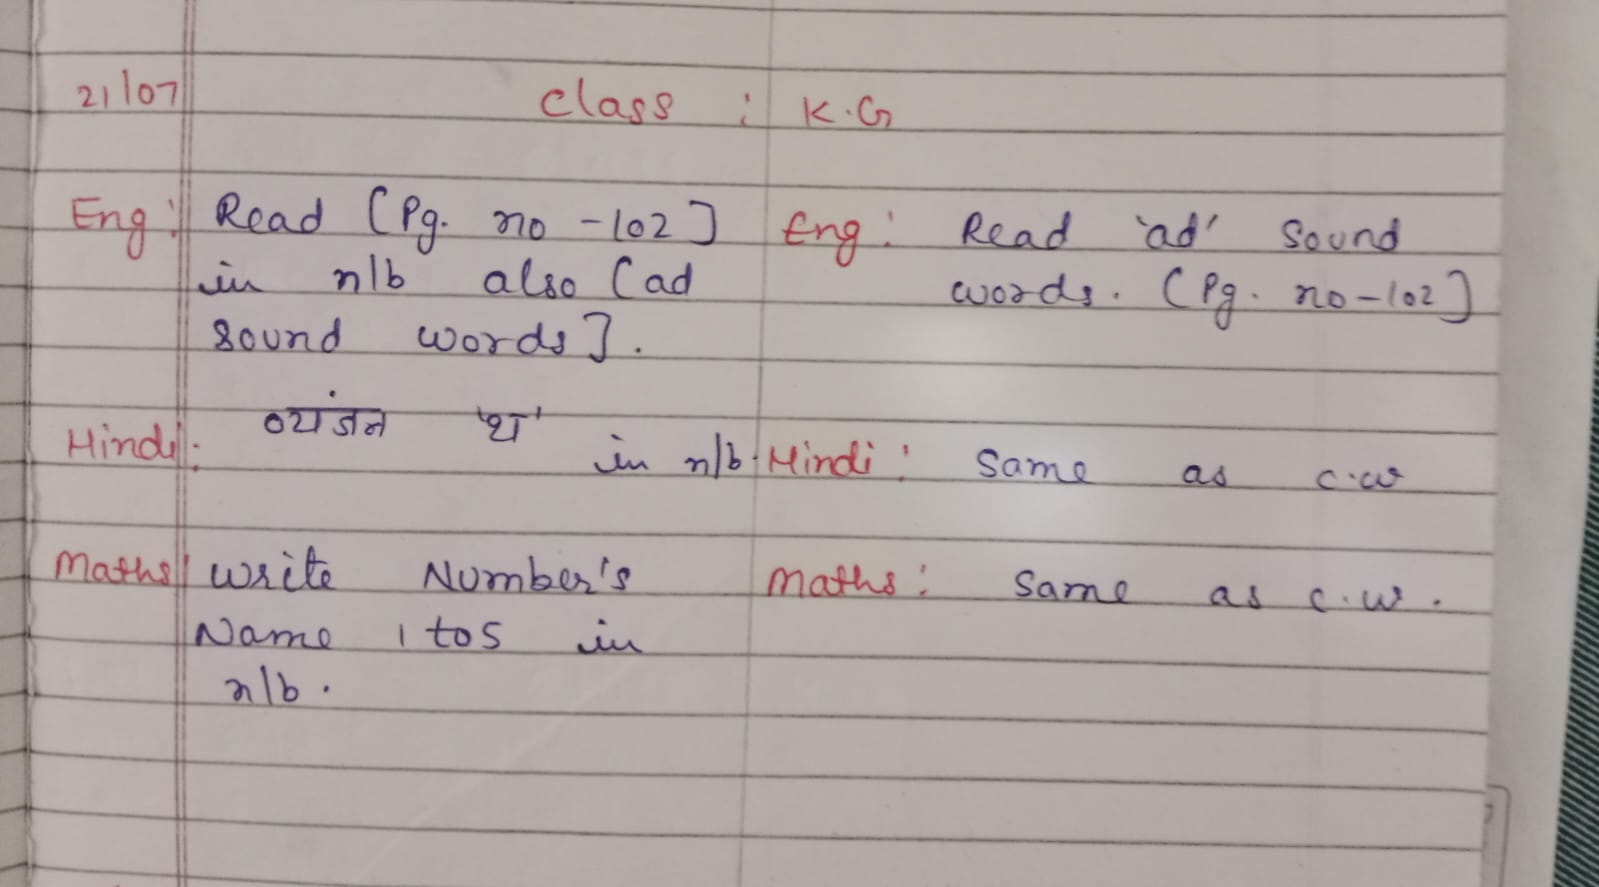 21/07 Class : K.G
Eng: Read [Pg. no - 102]
in n/b also [ad
sound words].
Hindi: व्यंजन 'थ' in n/b.
Maths: Write Number's
Name 1 to 5 in
n/b.
Eng: Read 'ad' sound
words. [Pg. no - 102]
Hindi: Same as c.w
Maths: Same as c.w.